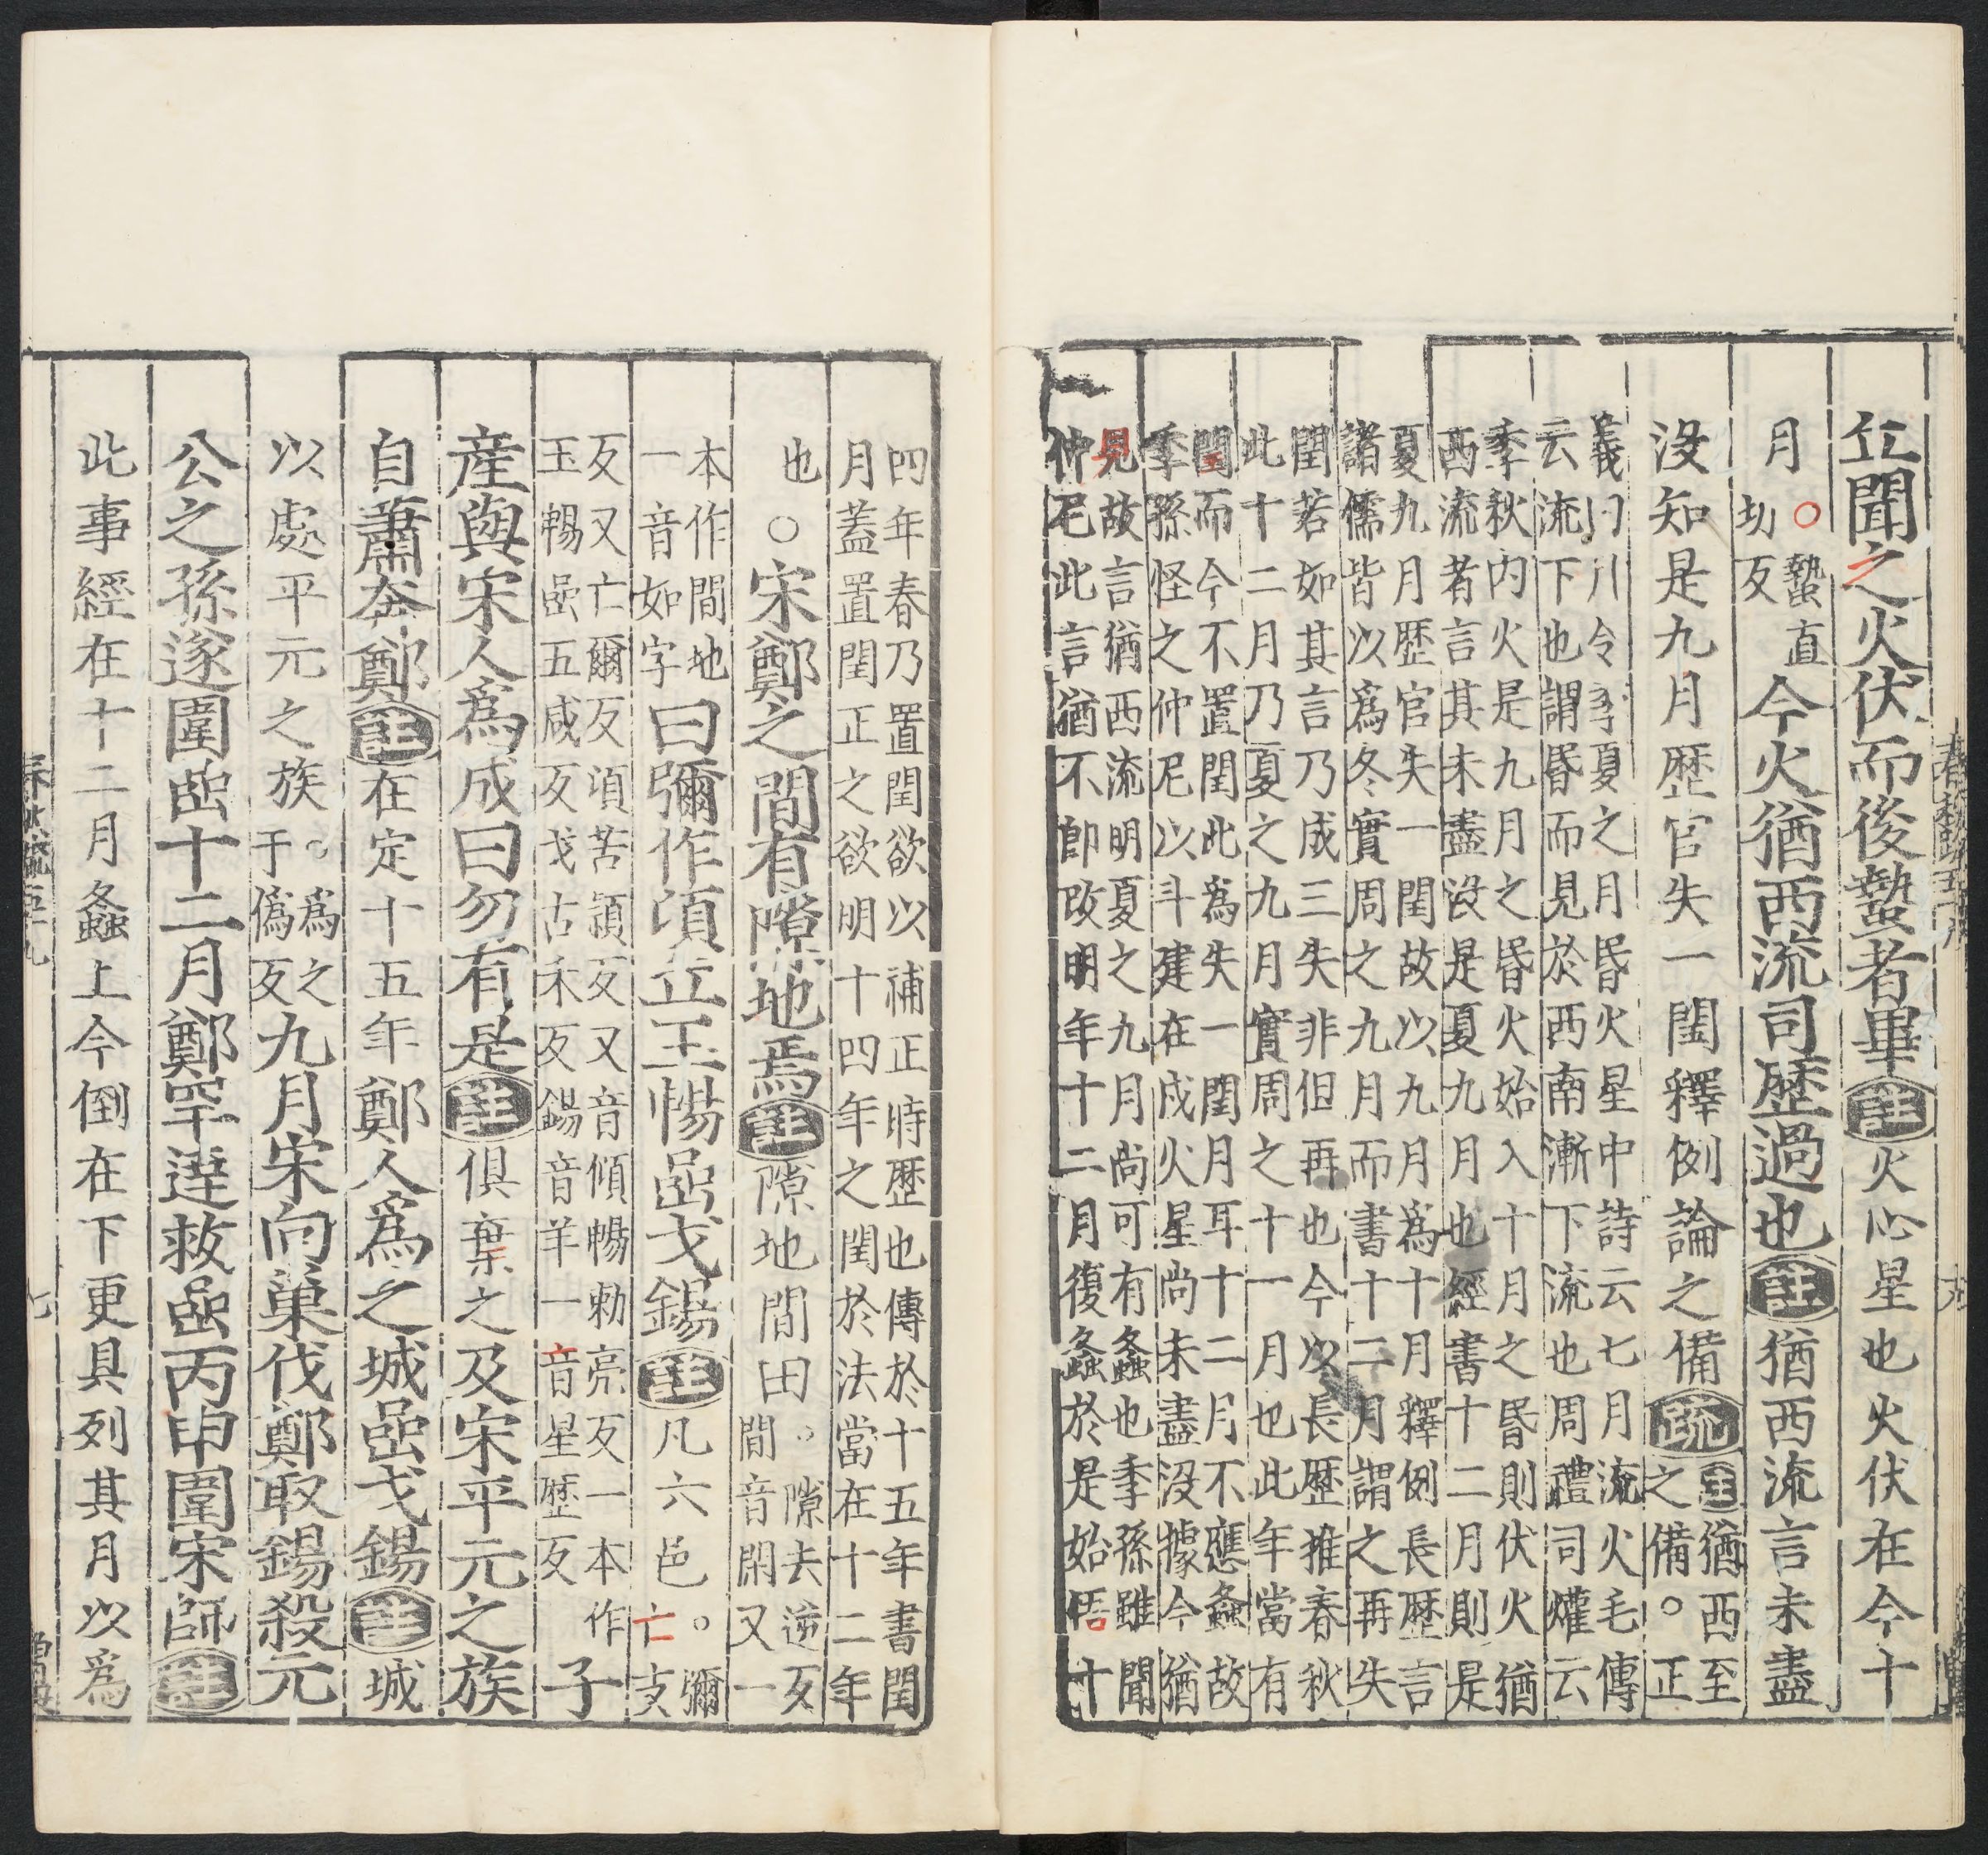 丘聞之火伏而後蟄者畢註火心星也火伏在今十
月○蟄直
刧反
今火猶西流司歴過也註猶西流言未盡
沒知是九月歴官失一閏釋例論之備疏
註猶西至
之備○正
義曰月令季夏之月昏火星中詩云七月流火毛傳
云流下也謂昏而見於西南漸下流也周禮司爟云
季秋内火是九月之昏火始入十月之昏則伏火猶
西流者言其未盡沒是夏九月也經書十二月則是
夏九月歴官失一閏故以九月爲十月釋例長歴言
諸儒皆以爲冬實周之九月而書十二月謂之再失
閏若如其言乃成三失非但再也今以長歴推春秋
此十二月乃夏之九月實周之十一月也此年當有
閏而今不置閏此爲失一閏月耳十二月不應螽故
季孫怪之仲尼以斗建在戌火星尚未盡沒據今猶
見故言猶西流明夏之九月尚可有螽也季孫雖聞
仲尼此言猶不即改明年十二月復螽於是始悟十
四年春乃置閏欲以補正時歴也傳於十五年書閏
月蓋置閏正之欲明十四年之閏於法當在十二年
也○宋鄭之間有隙地焉註隙地間田
○隙去逆反
間音閑又一
本作間地
一音如字
曰彌作頃丘玉暢嵒戈錫註凡六邑
○彌
亡支
反又亡爾反頃苦潁反又音傾暢勅亮反一本作
玉暢嵒五咸反戈古禾反錫音羊一音星歷反
子
產與宋人爲成曰勿有是註俱棄之及宋平元之族
自蕭奔鄭註在定十五年鄭人爲之城嵒戈錫註城
以處平元之族
○爲之
于僞反
九月宋向巢伐鄭取錫殺元
公之孫遂圍嵒十二月鄭罕達救嵒丙申圍宋師註
此事經在十二月螽上今倒在下更具列其月以爲